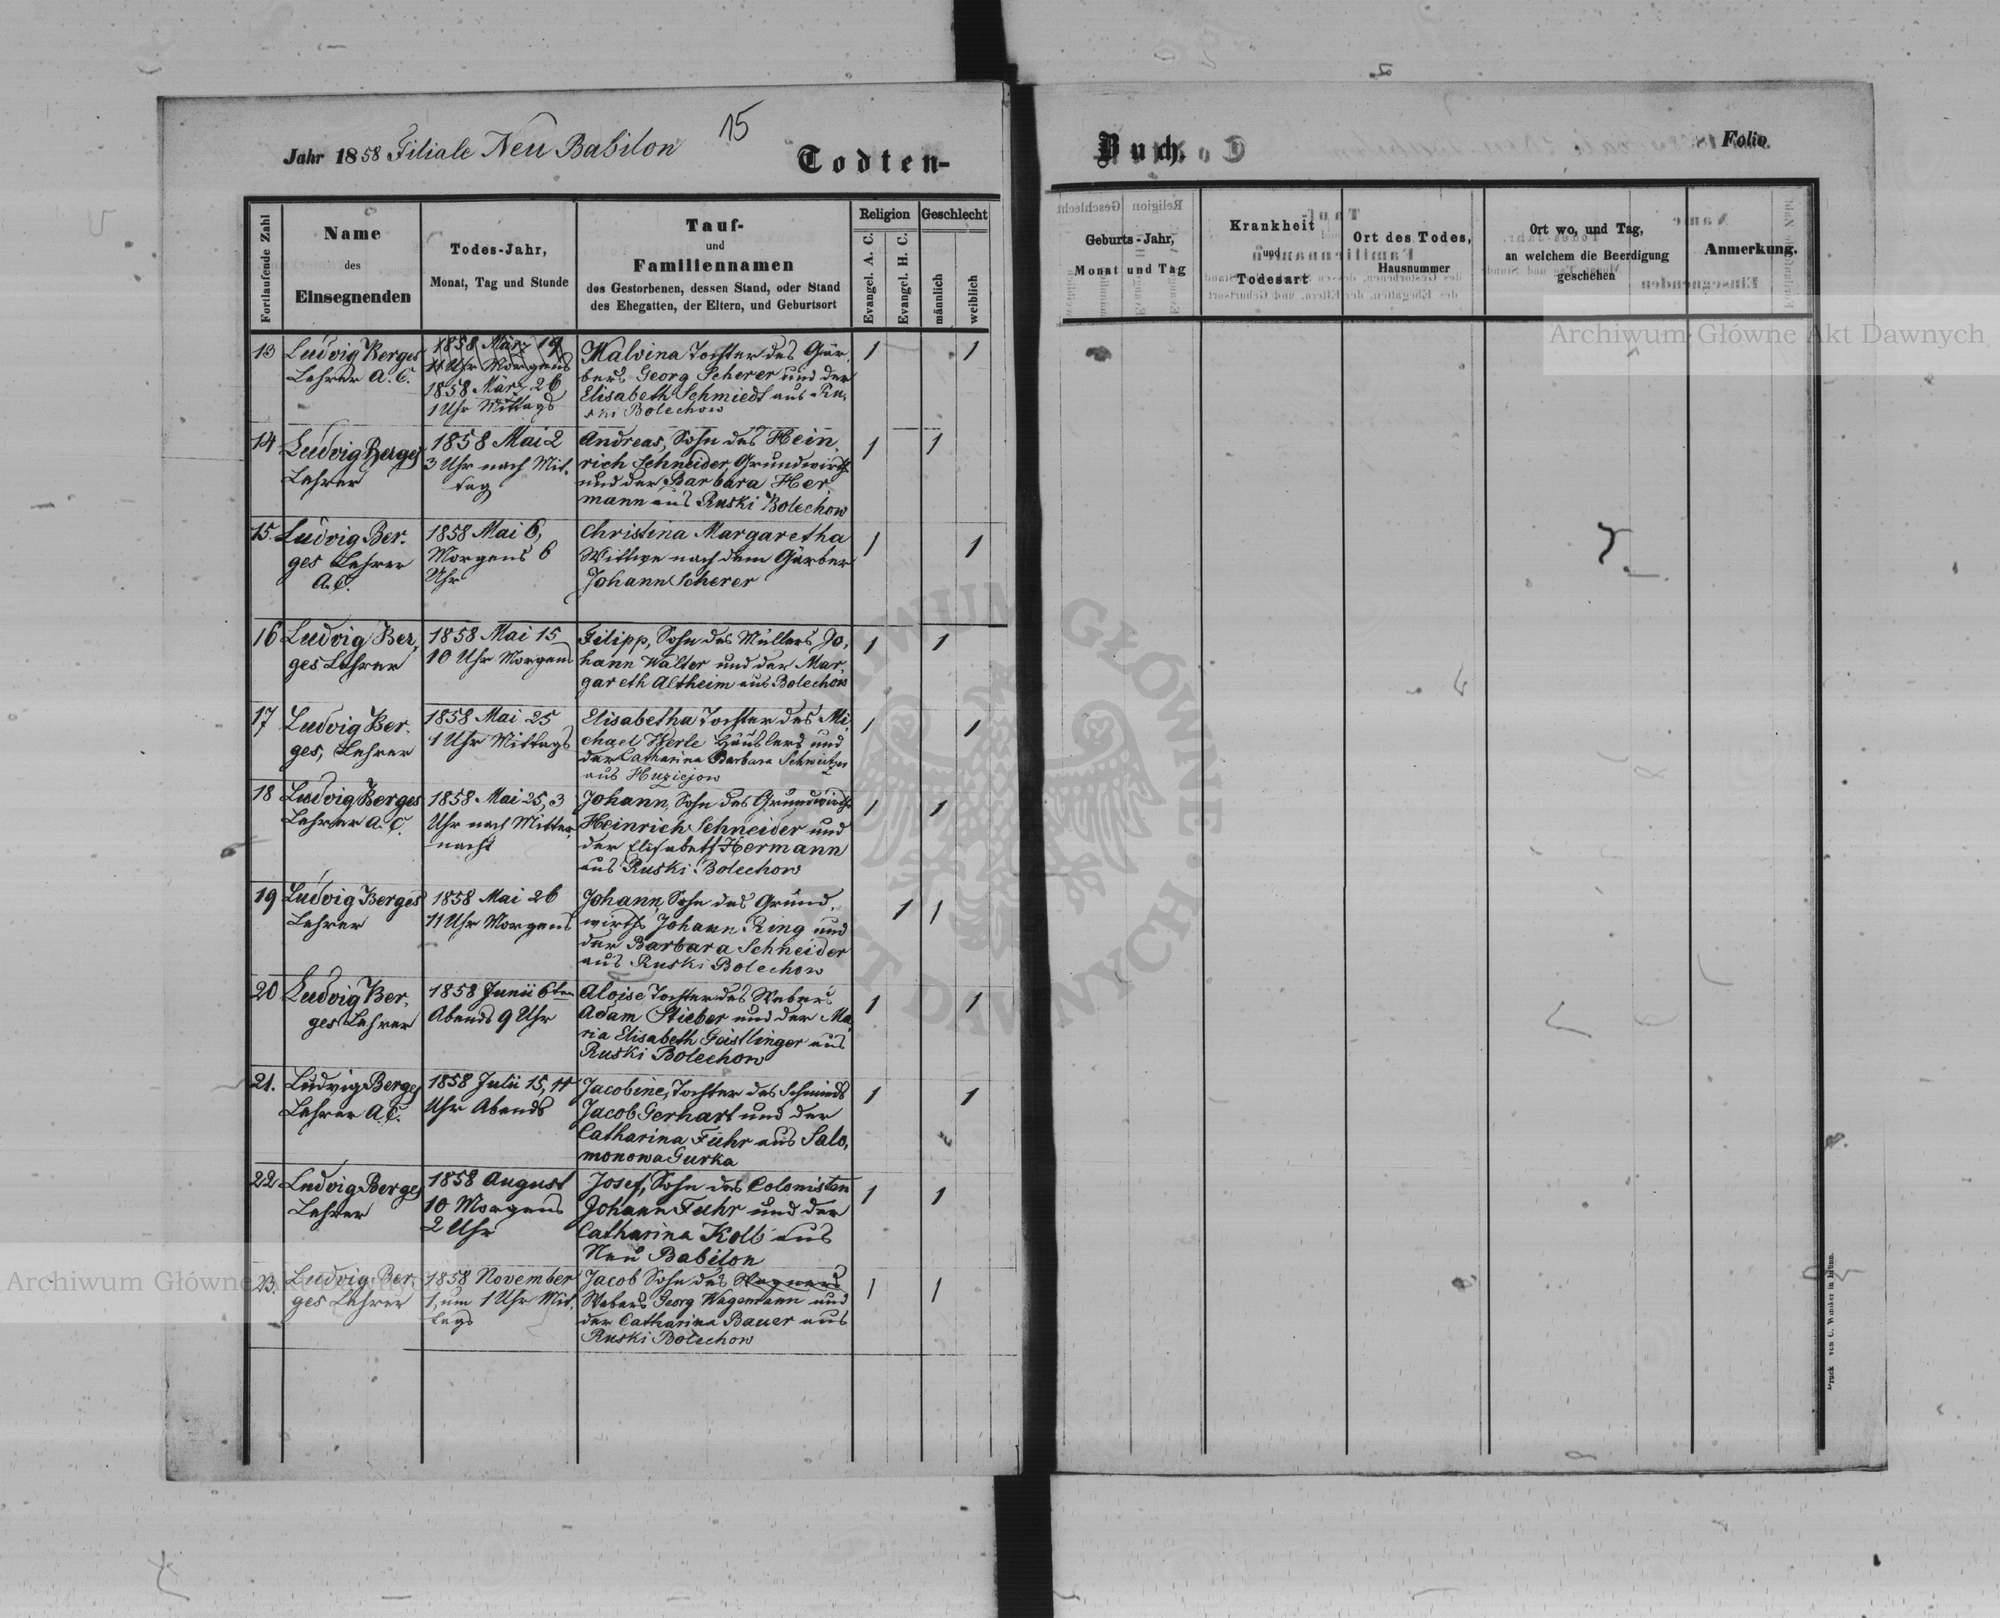 15
Jahr 1858 Filiale Neu Babilon
Todten-
Buch.
Folio
Fortlaufende Zahl
Name
des
Einsegnenden
Todes-Jahr,
Monat, Tag und Stunde
Tauf-
und
Familiennamen
des Gestorbenen, dessen Stand, oder Stand
des Ehegatten, der Eltern, und Geburtsort
Religion
Evangel. A. C.
Evangel. H. C.
Geschlecht
männlich
weiblich
Geburts-Jahr,
Monat und Tag
Krankheit
und
Todesart
Ort des Todes,
Hausnummer
Ort wo, und Tag,
an welchem die Beerdigung
geschehen
Anmerkung.
13
Ludvig Berges
Lehrer A. C.
1858 März 19
11 Uhr Morgens
1858 März 26
1 Uhr Mittags
Malvina Tochter des Gär-
bers Georg Scherer und der
Elisabeth Schmiedt aus Ru-
ski Bolechow
1
1
14
Ludvig Berges
Lehrer
1858 Mai 2
3 Uhr nach Mit-
tag
Andreas, Sohn des Hein
rich Schneider, Grundwirth
und der Barbara Her
mann aus Ruski Bolechow
1
1
15.
Ludvig Ber-
ges Lehrer
A. C.
1858 Mai 6,
Morgens 6
Uhr
Christina Margaretha
Wittwe nach dem Gärber
Johann Scherer
1
1
16
Ludvig Ber,
ges Lehrer
1858 Mai 15
10 Uhr Morgens
Filipp, Sohn des Müllers Jo,
hann Walter und der Mar,
gareth Altheim aus Bolechow
1
1
17
Ludvig Ber-
ges, Lehrer
1858 Mai 25
1 Uhr Mittags
Elisabetha Tochter des Mi,
chael Werle Häuslers und
der Catharina Barbara Schweitzer
aus Huziejow
1
1
18
Ludvig Berges
Lehrer A. C.
1858 Mai 25, 3
Uhr nach Mitter
nacht
Johann, Sohn des Grundwirths
Heinrich Schneider und
der Elisabeth Hermann
aus Ruski Bolechow
1
1
19
Ludvig Berges
Lehrer
1858 Mai 26
11 Uhr Morgens
Johann, Sohn des Grund,
wirths Johann Ring und
der Barbara Schneider
aus Ruski Bolechow
1
1
20
Ludvig Ber,
ges Lehrer
1858 Junii 6ten
Abends 9 Uhr
Aloise, Tochter des Webers
Adam Stieber und der Ma,
ria Elisabeth Geistlinger aus
Ruski Bolechow
1
1
21.
Ludvig Berges
Lehrer A. C.
1858 Julii 15, 11
Uhr Abends
Jacobine, Tochter des Schmieds
Jacob Gerhart und der
Catharina Fuhr aus Salo,
monowa Gurka
1
1
22
Ludvig Berges
Lehrer
1858 August
10 Morgens
2 Uhr
Josef, Sohn des Colonisten
Johann Fuhr und der
Catharina Kolb aus
Neu Babilon
1
1
23.
Ludvig Ber,
ges Lehrer
1858 November
1, um 1 Uhr Mit,
tags
Jacob Sohn des Wagners
Webers Georg Wagemann und
der Catharina Bauer aus
Ruski Bolechow
1
1
Druck von C. Winiker in Brünn.
Archiwum Główne Akt Dawnych
Archiwum Główne Akt Dawnych
ARCHIWUM GŁÓWNE AKT DAWNYCH